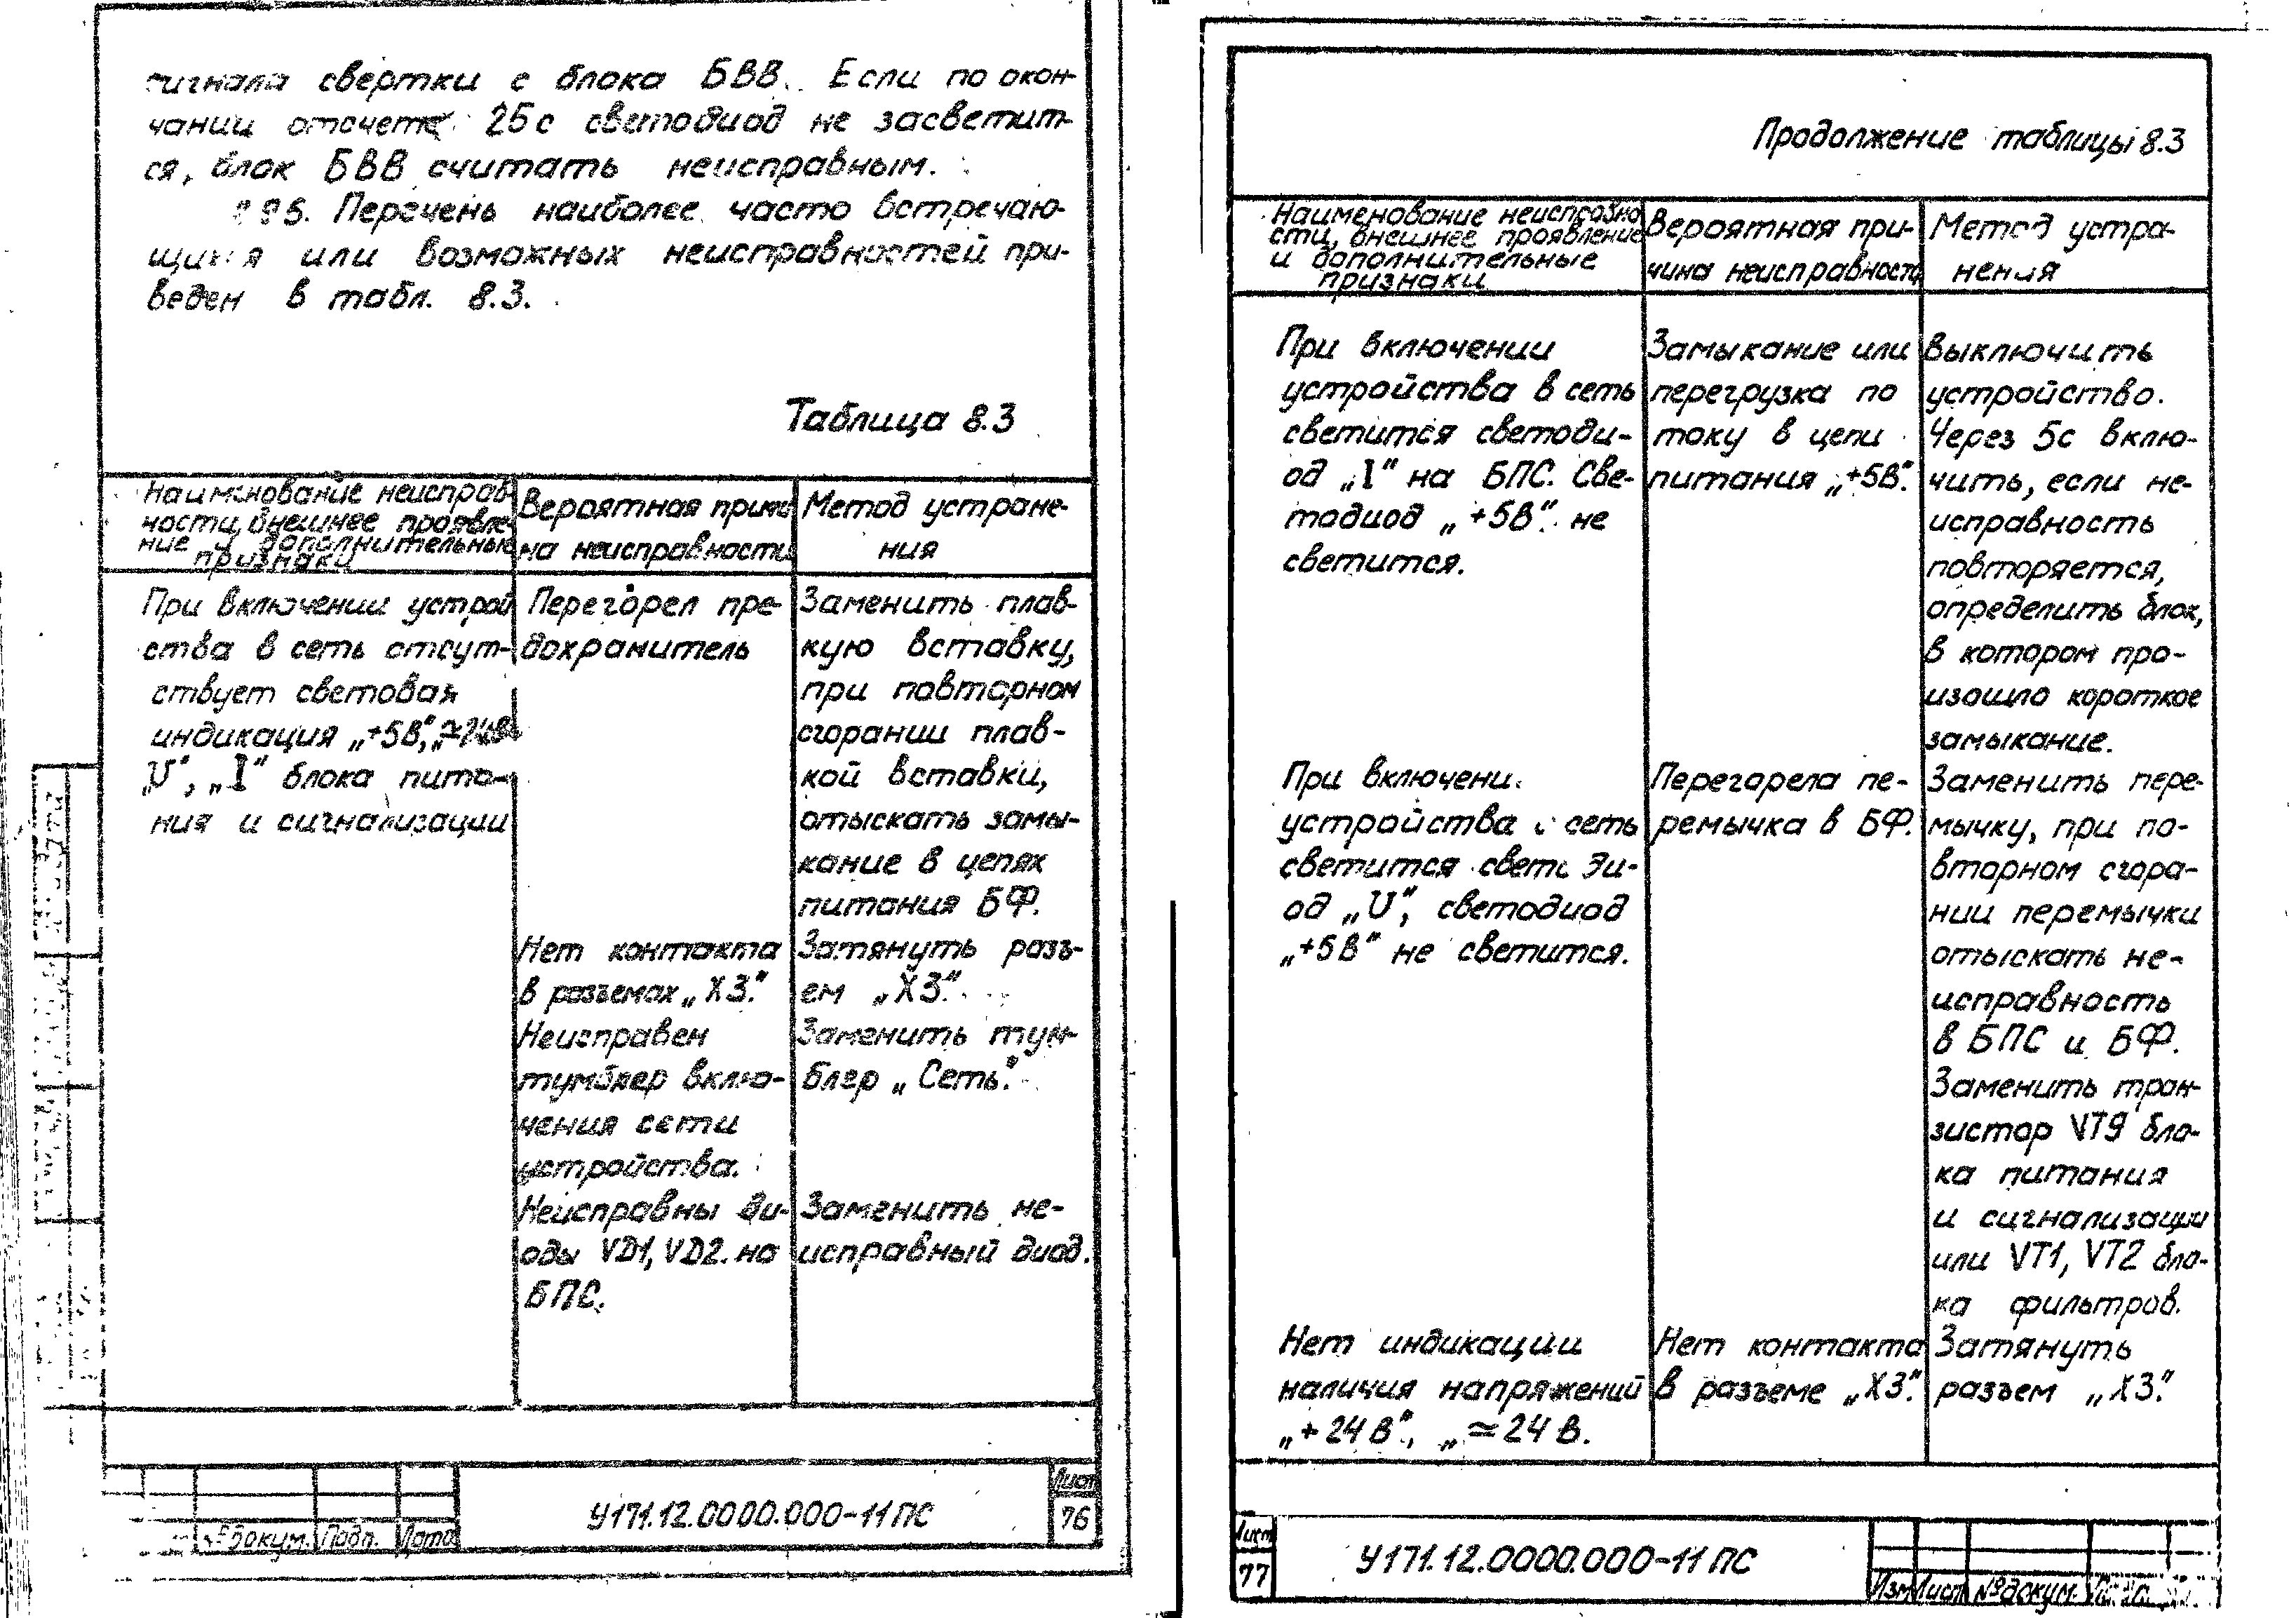 сигнала свертки с блока БВВ. Если по окон-
чании отсчета 25с светодиод не засветит-
ся, блок БВВ считать неисправным.
Перечень наиболее часто встречаю-
щихся или возможных неисправностей при-
веден в табл. 8.3.
Таблица 8.3
Наименование неисправ-
ности, внешнее проявле-
ние и дополнительные
признаки
Вероятная причи-
на неисправности
Метод устране-
ния
При включении устрой
ства в сеть отсут-
ствует световая
индикация „+5В", „≃24В"
„U", „I" блока пита-
ния и сигнализации
Перегорел пре-
дохранитель
Заменить плав-
кую вставку,
при повторном
сгорании плав-
кой вставки,
отыскать замы-
кание в цепях
питания БФ.
Нет контакта
в разъемах „Х3".
Затянуть разъ-
ем „Х3".
Неисправен
тумблер вклю-
чения сети
устройства.
Заменить тум-
блер „Сеть".
Неисправны ди-
оды VD1, VD2 на
БПС.
Заменить не-
исправный диод.
№ докум. Подп. Дата
У171.12.0000.000-11 ПС
Лист
76
Продолжение таблицы 8.3
Наименование неисправно
сти, внешнее проявление
и дополнительные
признаки
Вероятная при-
чина неисправности
Метод устра-
нения
При включении
устройства в сеть
светится светоди-
од „I" на БПС. Све-
тодиод „+5В" не
светится.
Замыкание или
перегрузка по
току в цепи
питания „+5В".
Выключить
устройство.
Через 5с вклю-
чить, если не-
исправность
повторяется,
определить блок,
в котором про-
изошло короткое
замыкание.
При включени
устройства сеть
светится свето ди-
од „U", светодиод
„+5В" не светится.
Перегорела пе-
ремычка в БФ.
Заменить пере-
мычку, при по-
вторном сгора-
нии перемычки
отыскать не-
исправность
в БПС и БФ.
Заменить тран-
зистор VT9 бло-
ка питания
и сигнализации
или VT1, VT2 бло-
ка фильтров.
Нет индикации
наличия напряжений
„+24 В", „≃24 В.
Нет контакта
в разъеме „Х3".
Затянуть
разъем „Х3".
Лист
77
У171.12.0000.000-11 ПС
Изм Лист № докум.